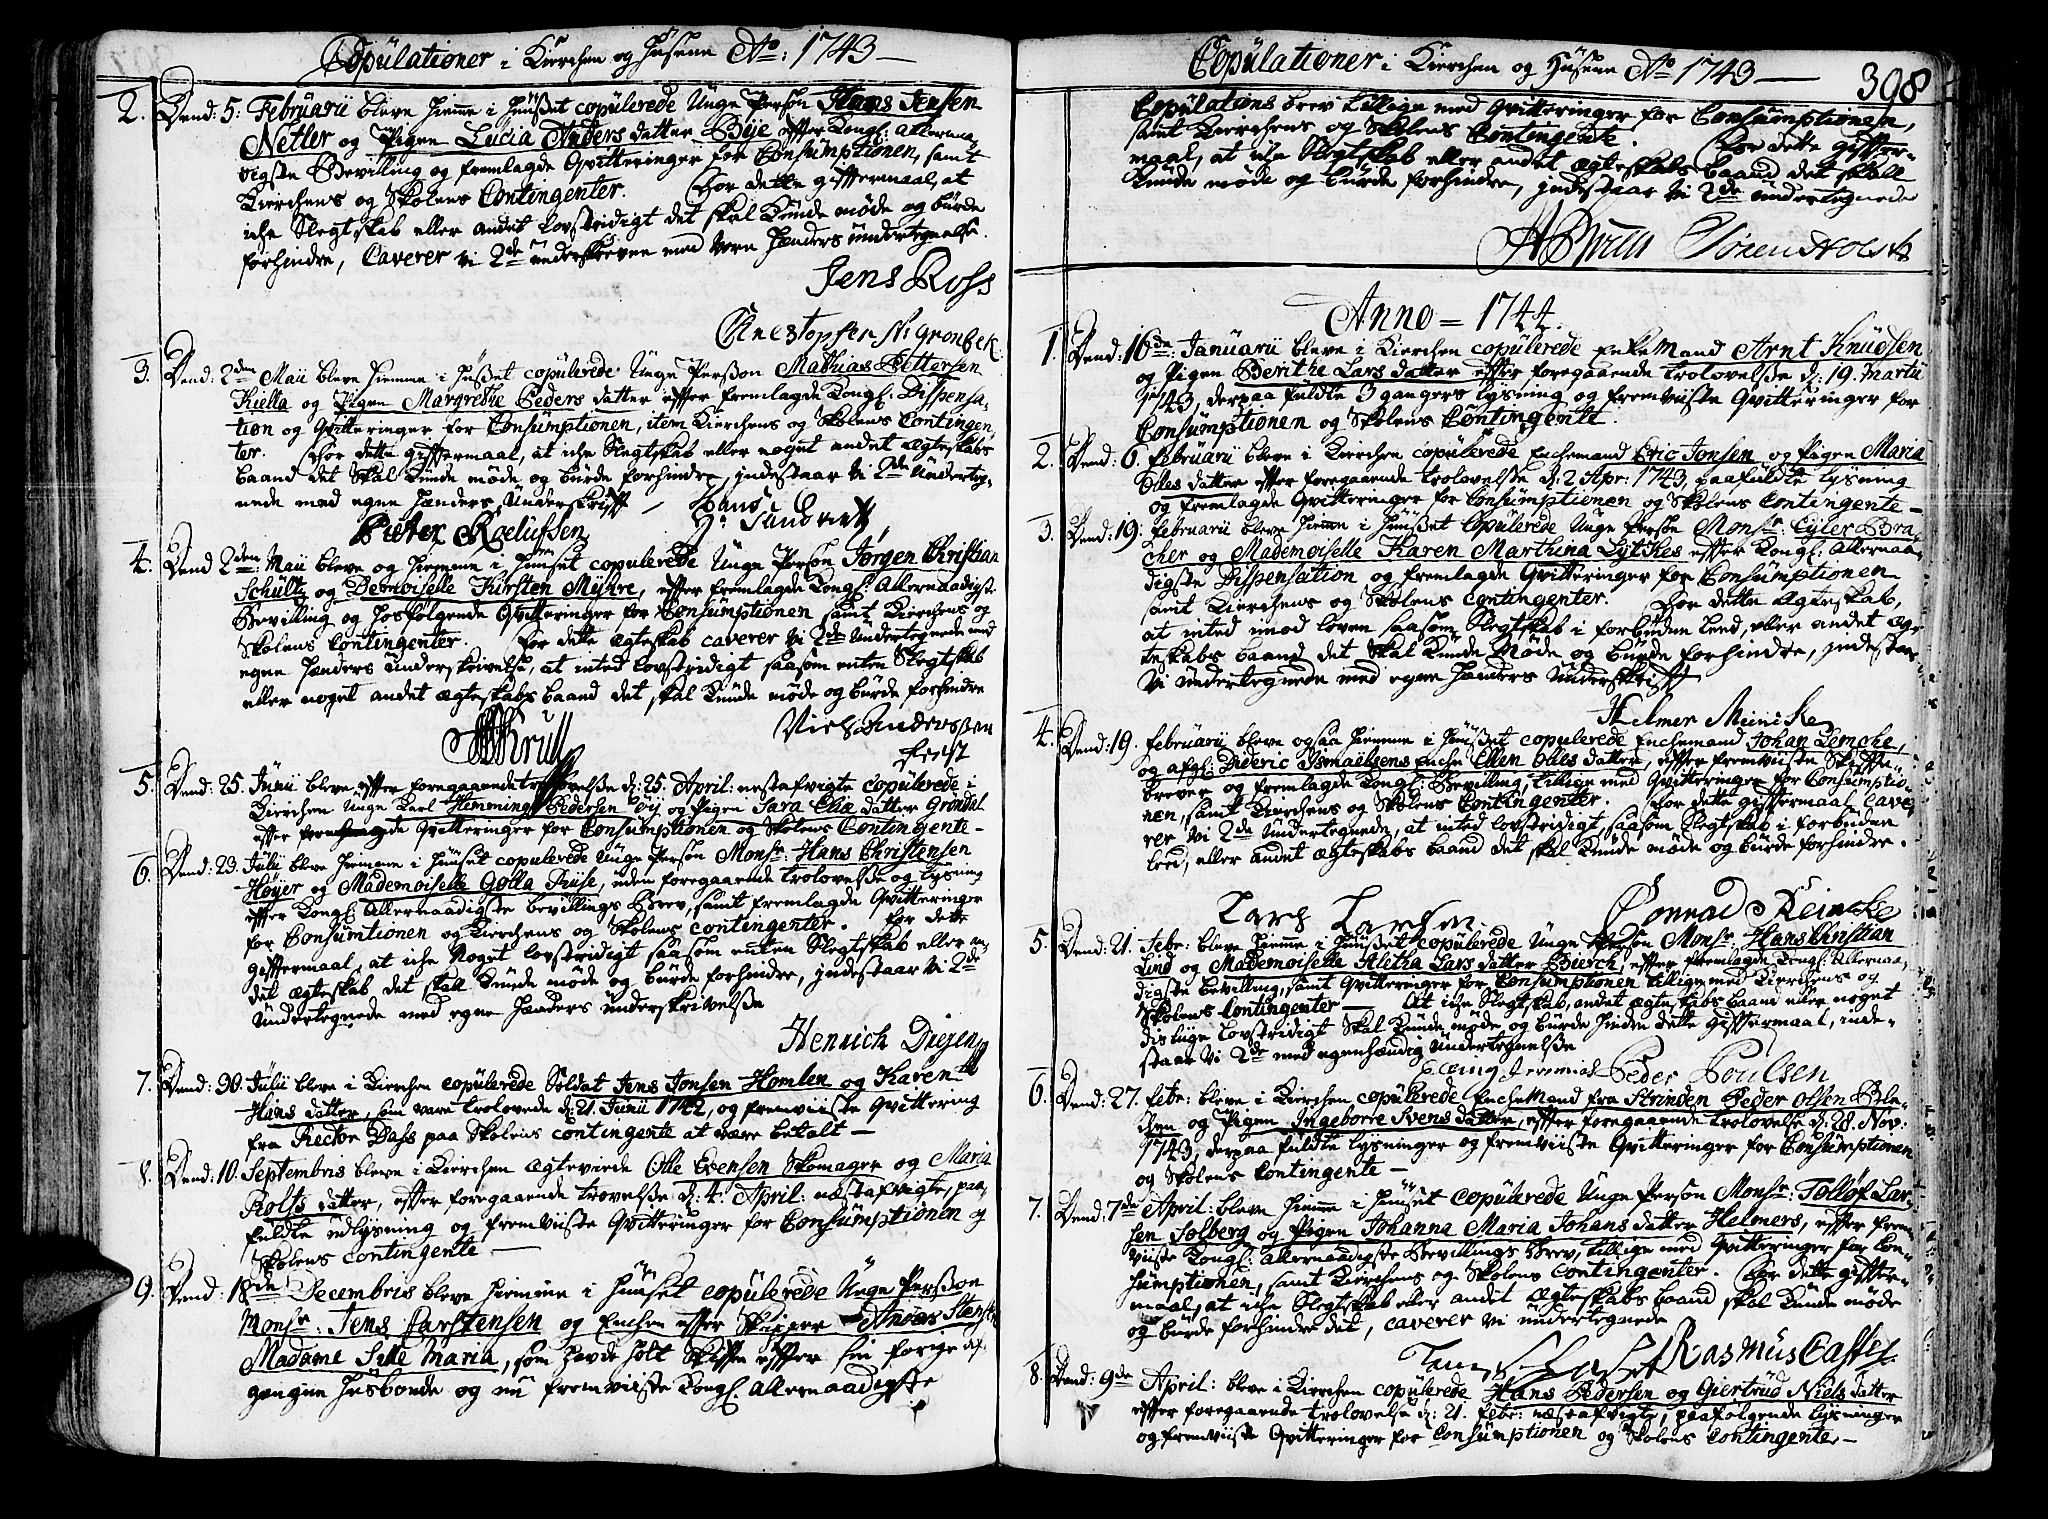 Copulationer i Kierchen og Husene Ao: 1743
2. Dend: 5. Februarii bleve hiemme i Huuset copulerede Unge Persohn Hans Jensen
Netler og Pigen Lucia Anders datter Bÿe efter Kongl: allernaa-
digste Bevilling og fremlagde Qvitteringer for Consumptionen, samt
Kierchens og Skolens Contingenter. For dette giftermaal, at
iche Slegtskab eller andet lovstridigt det skal kunde møde og burde
forhindre, Caverer vi 2de underskrevne med vore Hænders underteignelse.
Jens Ross
Christopfer
3. Dend: 2den Maii bleve hiemme i Huuset copulerede Unge Persohn Mathias Pettersen
Kiella og Pigen Margrethe Peders datter efter fremlagde Kongl: Dispensa-
tion og Qvitteringer for Consumptionen, item Kierchens og Skolens Contingen-
ter. For dette giftermaal, at iche Slegtskab eller noget andet Ægteskabs
baand det skal kunde møde og burde forhindre, indestaar vi 2de Underteg-
nede med egne Hænders Underskrift
Pieter Roelufsen
4. Dend 2den: Maii bleve og hiemme i Huuset copulerede Unge Persohn Jørgen Christian
Schultz og Demoiselle Kirsten Mÿhre, efter fremlagde Kongl. Allernaadigste
Bevilling og hosfølgende Qvitteringer for Consumptionen samt Kierchens og
Skolens Contingenter. For dette Ægteskab caverer vi 2de Undertegnede med
egne Hænders Underskrivelse, at inted lovstridigt saasom enten Slegtskab
eller noget andet Ægteskabs baand det skal kunde møde og burde forhindre
Krull
Niels Andersen
5. Dend: 25. Junii bleve efter foregaaende trolovelse d: 25. April: nestafvigte copulerede i
Kierchen Unge Karl Hemming Pedersen Høÿ og Pigen Sara Elia datter Grøndal
efter fremlagde Qvitteringer for Consumptionen og Skolens Contingente -
6. Dend: 23. Julii bleve hiemme i Huuset copulerede Unge Persohn Monsr: Hans Christensen
Høÿer og Mademoiselle Golla Friise, uden foregaaende trolovelse og lysning
efter Kongl: Allernaadigste bevillings Brev, samt fremlagde Qvitteringer
for Consumtionen og Kierchens og Skolens contingenter. For dette
giftermaal, at iche Noget lovstridigt saasom enten Slegtskab eller an-
det Ægteskab det skall kunde møde og burde forhindre, indestaar vi 2de
Undertegnede med egne Hænders underskrivelse
Henrich Diesen
7. Dend: 30. Julii bleve i Kierchen copulerede Soldat Jens Jonsen Homlen og Karen
Hans datter, som vare trolovede d: 21. Junii 1742, og fremviiste Qvittering
fra Rector Dass paa Skolens contingente at være betalt -
8. Dend: 10. Septembris bleve i Kierchen Ægteviede Olle Evensen Skomager og Maria
Rolfs datter, efter foregaaende trolovelse d: 4. April: næstafvigte, paa-
fuldte udlysning og fremviiste Qvitteringer for Consumptionen og
Skolens contingente -
9. Dend: 18de Decembris bleve hiemme i Huuset copulerede Unge Persohn
Monsr: Jens Carstensen og Enchen efter Skipper Andas Stensen
Madame Sille Maria, som havde holt Skifte efter sin forige af-
gangne Husbonde og nu fremviiste Kongl. allernaadigste
Copulationer i Kierchen og Husene Ao 1743
398
Copulations brev tillige med Qvitteringer for Consumptionen,
samt Kierchens og Skolens Contingente. For dette gifter-
maal, at iche Slegtskab eller andet Ægteskabs baand det skall
kunde møde og burde forhindre, indestaar vi 2de undertegnede
Søren Holst
Anno = 1744.
1. Dend: 16de: Januarii bleve i Kierchen copulerede Enkemand Arnt Knudsen
og Pigen Berithe Lars datter efter foregaaende trolovelse d: 19. Martii
1743, derpaa fuldte 3 gangers lysning og fremviiste Qvitteringer for
Consumptionen og Skolens Contingente.
2. Dend: 6. februarii bleve i Kierchen copulerede Enchemand Eric Jonsen og Pigen Maria
Olles datter efter foregaaende trolovelse d: 2 Apr: 1743, paafuldte lysning
og fremlagde Qvitteringer for Consumptionen og Skolens Contingente -
3. Dend: 19: februarii bleve hiemme i Huuset Copulerede Unge Persohn Monsr: Eÿler Bra-
cher og Mademoiselle Karen Marthina Lÿtkes efter Kongl: allernaa-
digste Dispensation og fremlagde Qvitteringer for Consumptionen
samt Kierchens og Skolens contingenter. For dette Ægteskab,
at inted imod loven saasom Slegtskab i forbuden Leed, eller andet Æg-
teskabs baand det skal kunde Møde og burde forhindre, indestaar
vi Undertegnede med egne Hænders Underskrift
Helmer Meincke
4. Dend: 19. februarii bleve ogsaa hiemme i Huuset copulerede Enchemand Johan Lemche,
og afgl: Dideric Ismaelsens Enche Ellen Olles datter, efter fremviiste Skifte-
brever og fremlagde Kongl: Bevilling, tillige med Qvitteringer for Consumptio-
nen, samt Kierchens og Skolens Contingenter. For dette giftermaal cave-
rer vi 2de Undertegnede, at inted lovstridigt, saasom Slegtskab i forbuden
leed, eller andet Ægteskabs baand det skal kunde møde og burde forhindre.
Lars Larsen
Conrad Reincke
5. Dend: 21. Febr: bleve hiemme i Huuset copulerede Unge Persohn Monsr: Hans Christian
Lind og Mademoiselle Aletha Lars datter Bierch, efter fremlagde Kongl: Allernaa-
digste bevilling, samt Qvitteringer for Consumptionen tillige med Kierchens og
Skolens Contingenter - At iche Slegtskab, andet Ægteskabs baand eller noget
dislige lovstridigt skal kunde møde og burde hindre dette giftermaal, inde-
staar vi 2de med egenhændig Undertegnelse
Peder Poulsen
6. Dend: 27. febr: bleve i Kierchen copulerede Enchemand fra Strinden Peder Olsen Ble-
chen og Pigen Ingeborre Svens datter, efter foregaaende trolovelse d: 28. Nov:
1743, derpaa fuldte lysninger og fremviiste Qvitteringer for Consumptionen
og Skolens Contingente -
7. Dend: 7de April: bleve hiemme i Huuset copulerede Unge Persohn Monsr: Tolløf Lar-
sen Solberg og Pigen Johanna Maria Johans datter Helmers, efter frem-
viiste Kongl: allernaadigste Bevillings Brev, tillige med Qvitteringer for Con-
sumptionen, samt Kierchens og Skolens contingenter. For dette gifter-
maal, at iche Slegtskab eller andet Ægteskabs baand skal kunde møde
og burde forhindre det, caverer vi undertegnede
Rasmus
8. Dend: 9de April: bleve i Kierchen copulerede Hans Pedersen og Giertrud Niels datter
efter foregaaende trolovelse d: 21. febr: næstafvigte, paafølgende lysninger
og fremviiste Qvitteringer for Consumptionen og Skolens Contingente -